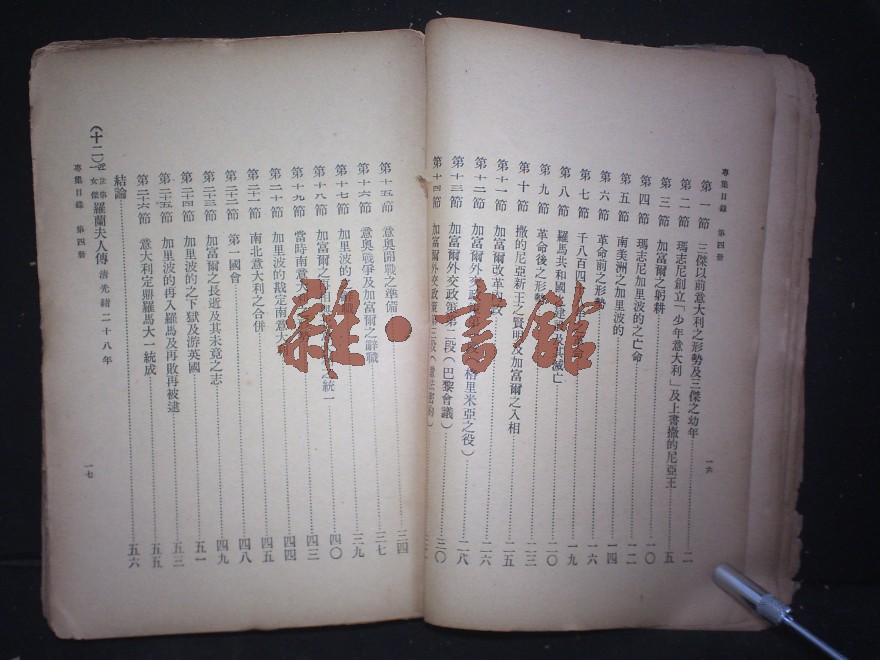 專集目錄 第四冊
一六
第一節 三傑以前意大利之形勢及三傑之幼年 二
第二節 瑪志尼創立「少年意大利」及上書撒的尼亞王 五
第三節 加富爾之躬耕 一〇
第四節 瑪志尼加里波的之亡命 一二
第五節 南美洲之加里波的 一四
第六節 革命前之形勢 一六
第七節 千八百四十 一九
第八節 羅馬共和國 建 及其滅亡 二〇
第九節 革命後之形勢 二三
第十節 撒的尼亞新王之賢明及加富爾之入相 二五
第十一節 加富爾改革 政 二六
第十二節 加富爾外交政 格里米亞之役) 二八
第十三節 加富爾外交政策第二段(巴黎會議) 三〇
第十四節 加富爾外交政策第三段(意法密約)
第十五節 意奧開戰之準備 三四
第十六節 意奧戰爭及加富爾之辭職 三七
第十七節 加里波的 三九
第十八節 加富爾之再相 之統一 四〇
第十九節 當時南意大 四三
第二十節 加里波的戡定南意大 四四
第二十一節 南北意大利之合併 四五
第二十二節 第一國會 四八
第二十三節 加富爾之長逝及其未竟之志 四九
第二十四節 加里波的之下獄及游英國 五一
第二十五節 加里波的再入羅馬及再敗再被逮 五三
第二十六節 意大利定鼎羅馬大一統成 五五
結論 五六
(十二)近世第一女傑羅蘭夫人傳 清光緒二十八年
專集目錄 第四冊
一七
雜·書館